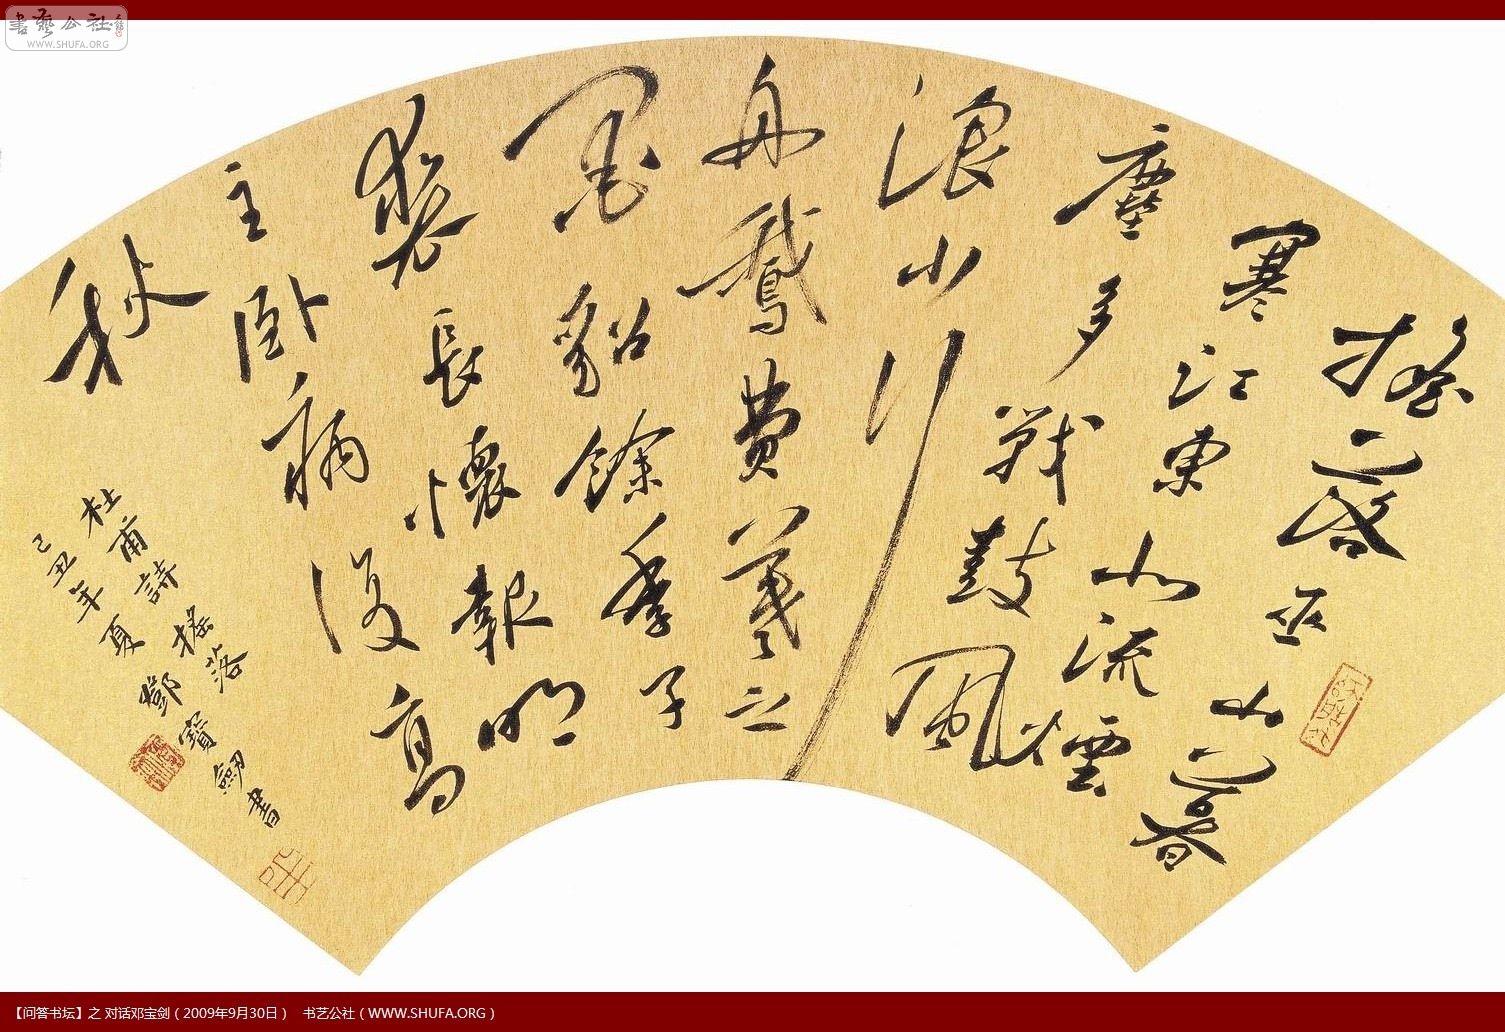 書藝公社
WWW.SHUFA.ORG
搖落巫山暮
寒江東北流煙
塵多戰鼓風
浪少行
舟鵝費羲之
墨貂餘季子
裘長懷報明
主臥病復高
秋
杜甫詩搖落
己丑年夏鄧寶劒書
【问答书坛】之 对话邓宝剑（2009年9月30日） 书艺公社（WWW.SHUFA.ORG）